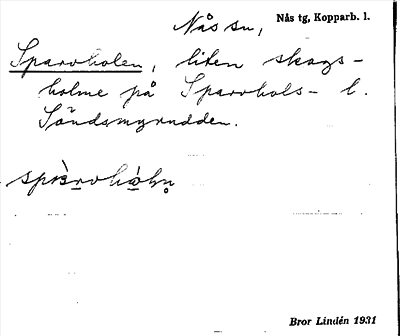 Nås sn,
Nås tg, Kopparb. l.
Sparvholen, liten skogs-
holme på Sparvhols- l.
Söndsmyrudden.
Bror Lindén 1931